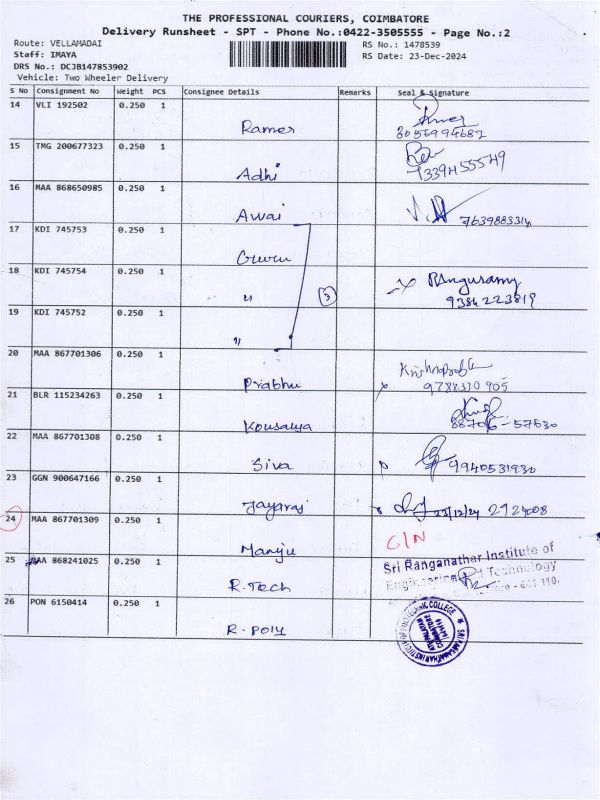 THE PROFESSIONAL COURIERS, COIMBATORE
Delivery Runsheet - SPT - Phone No.:0422-3505555 - Page No.:2
Route: VELLAMADAI
RS No.: 1478539
Staff: IMAYA
RS Date: 23-Dec-2024
DRS No.: DCJB147853902
Vehicle: Two Wheeler Delivery
S No Consignment No Weight PCS Consignee Details Remarks Seal & Signature
14 VLI 192502 0.250 1
Rames
8056994682
15 TMG 200677323 0.250 1
Adhi
16 MAA 868650985 0.250 1
Awai
7639883314
17 KDI 745753 0.250 1
Guru
18 KDI 745754 0.250 1
" 3
Rangusamy
9384223819
19 KDI 745752 0.250 1
"
20 MAA 867701306 0.250 1
Prabhu
9788330905
21 BLR 115234263 0.250 1
Kousalya
88706-57630
22 MAA 867701308 0.250 1
Siva
9940531930
23 GGN 900647166 0.250 1
Jayaraj
23/12/24
24 MAA 867701309 0.250 1
Manju
C/N
25 MAA 868241025 0.250 1
R.Tech
Sri Ranganathar Institute of
Engineering and Technology
26 PON 6150414 0.250 1
R.Poly